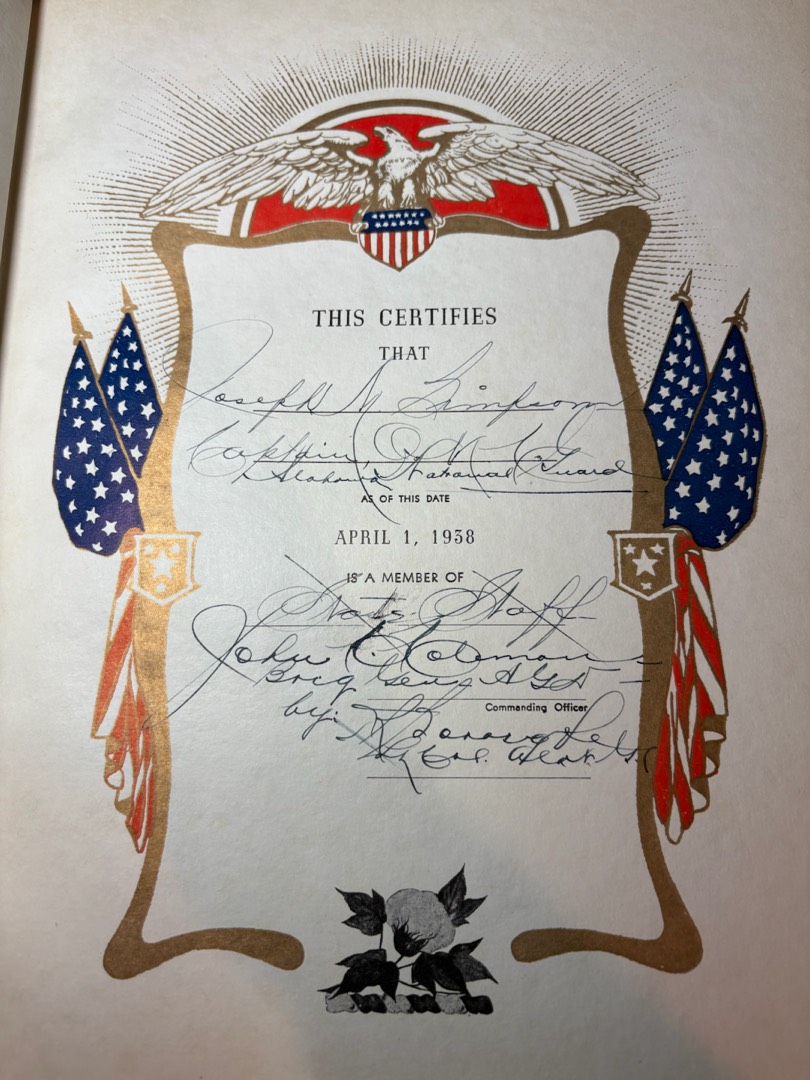 THIS CERTIFIES
THAT
Joseph N. Simpson
Captain Q. M.
National Guard
AS OF THIS DATE
APRIL 1, 1938
IS A MEMBER OF
State Staff
John C.
Brig Gen, AGD
Commanding Officer
by:
Lt Col.